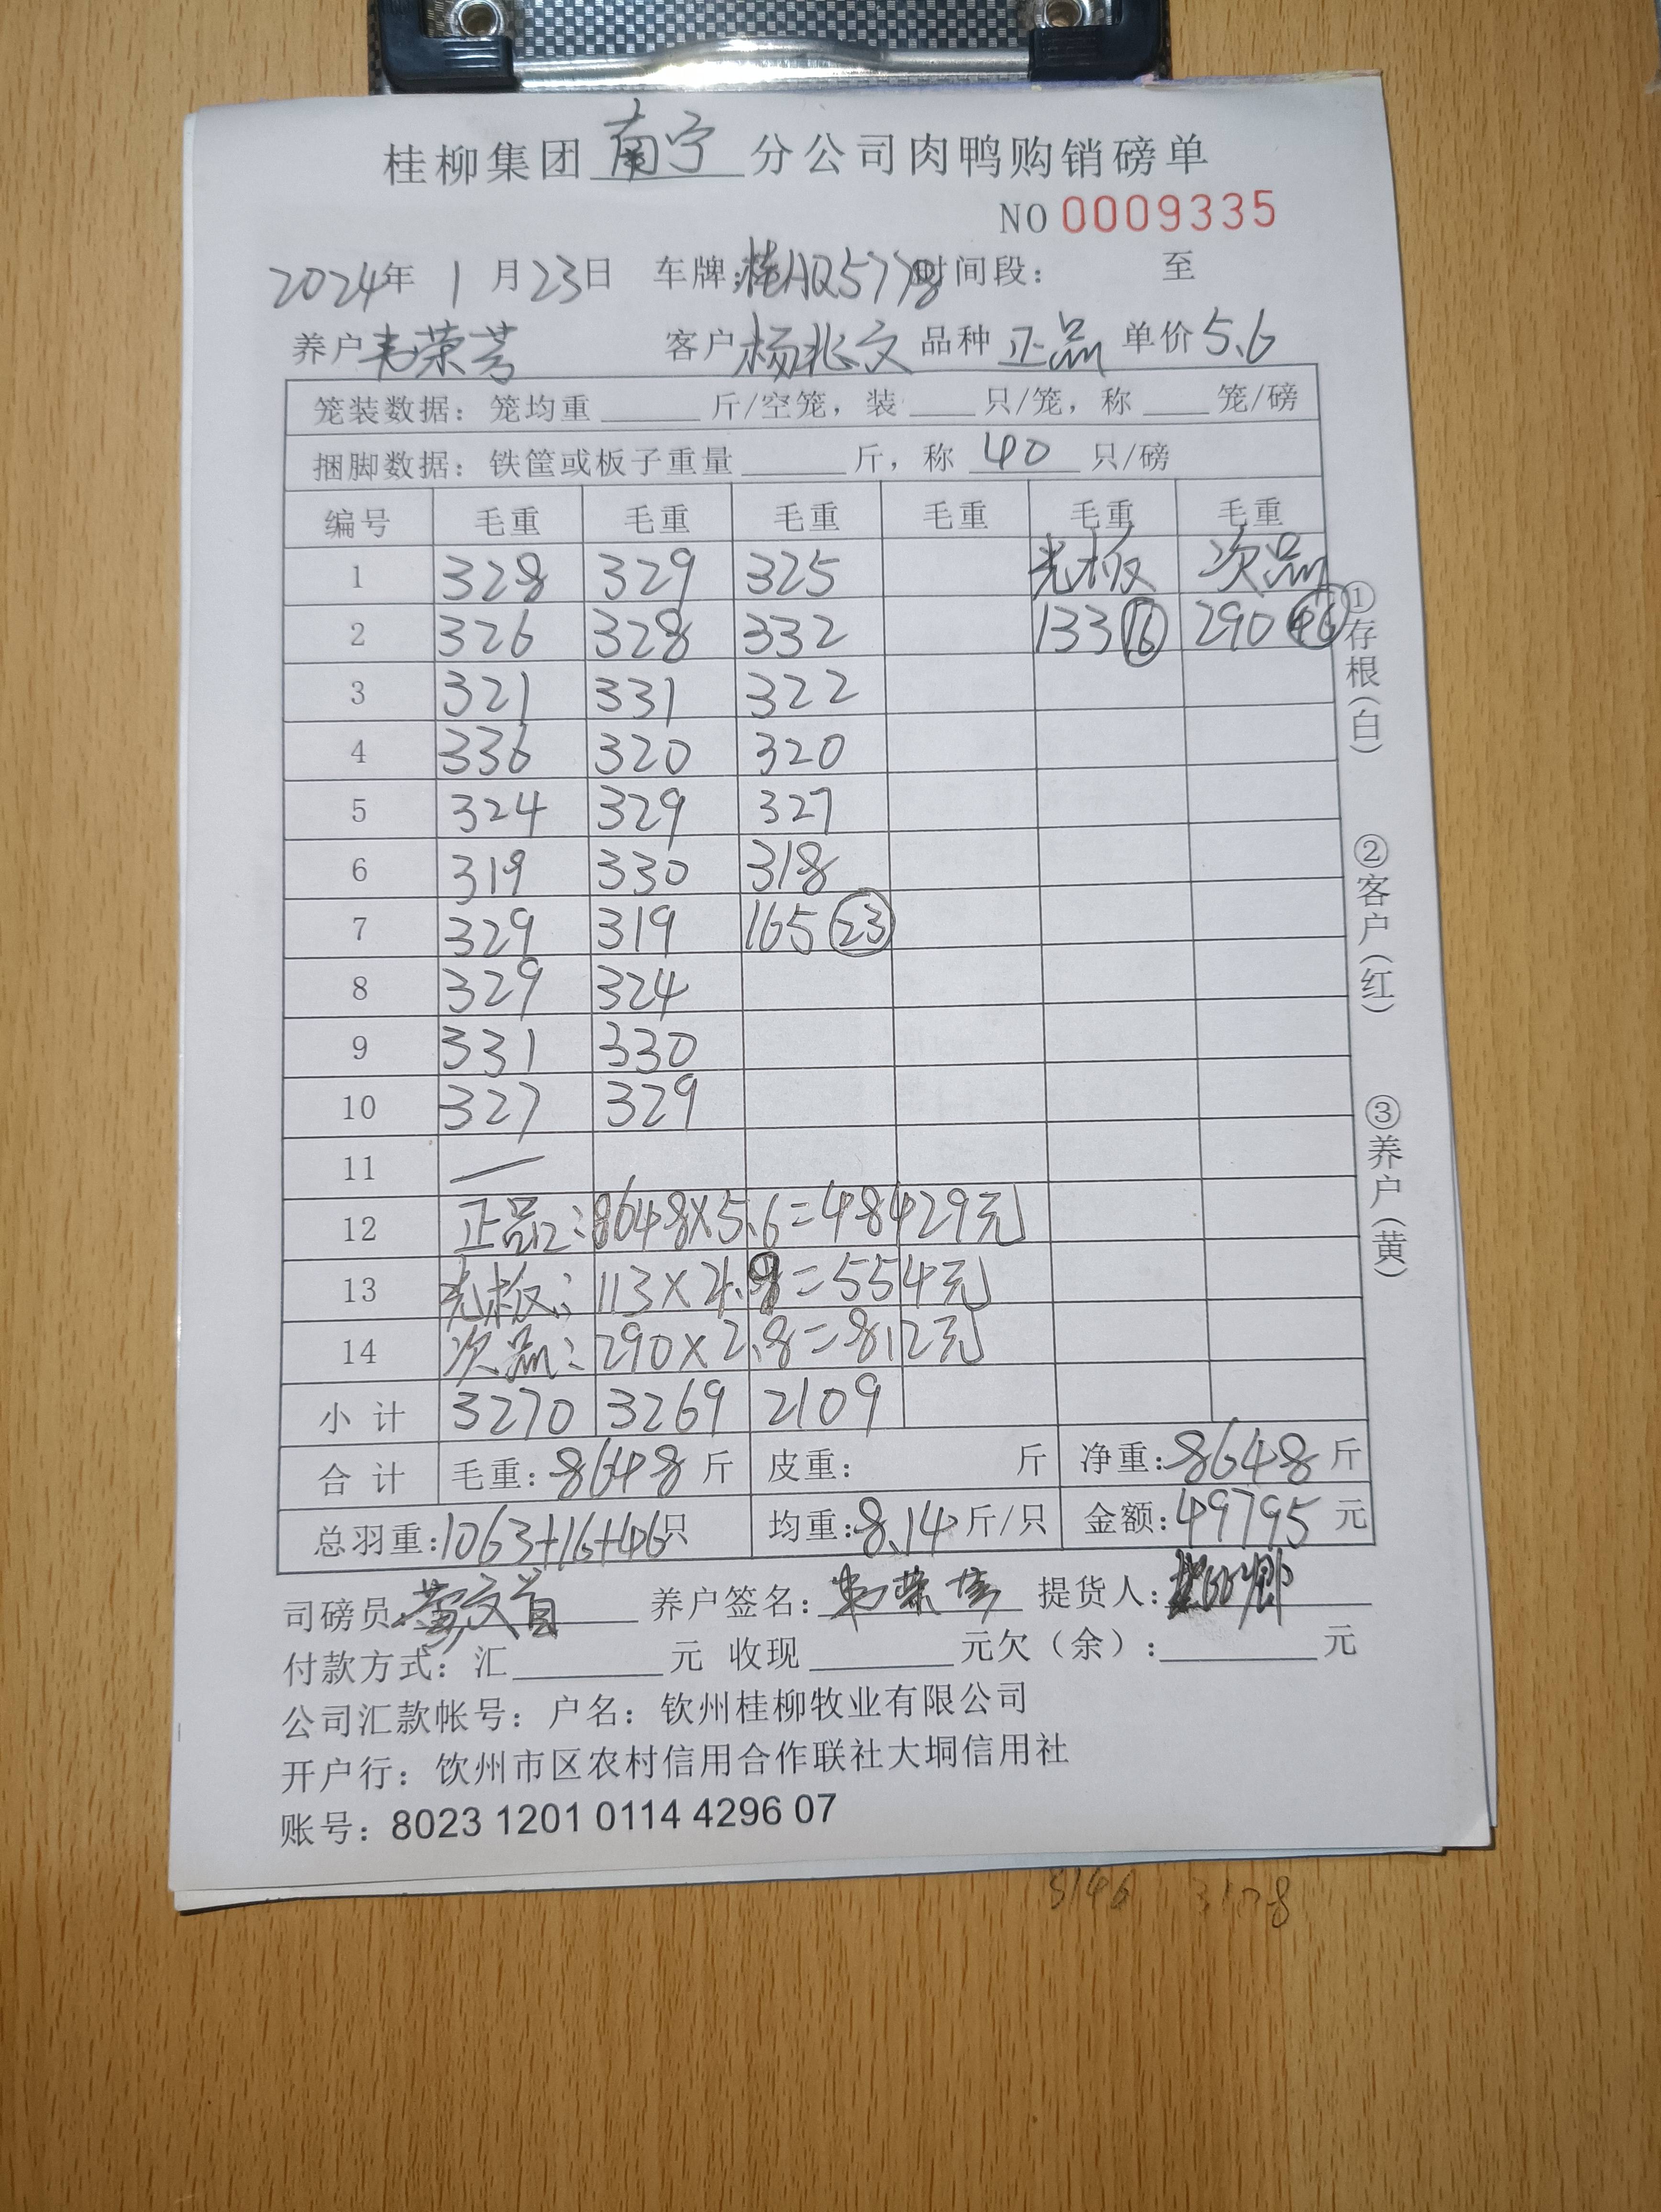 桂柳集团南宁分公司肉鸭购销磅单
NO 0009335
2024年 1月23日 车牌:桂AQ5778时间段: 至
养户韦荣芳 客户杨兆文 品种正品 单价5.6
笼装数据: 笼均重____斤/空笼, 装____只/笼, 称____笼/磅
捆脚数据: 铁筐或板子重量____斤, 称 40 只/磅
编号 毛重 毛重 毛重 毛重 毛重 毛重
1 328 329 325 光板 次品
2 326 328 332 133 16 290 46
3 321 331 322
4 336 320 320
5 324 329 327
6 319 330 318
7 329 319 165 23
8 329 324
9 331 330
10 327 329
11 —
12 正品:8648×5.6=48429元
13 光板:113×4.9=554元
14 次品:290×2.8=812元
小计 3270 3269 2109
合计 毛重:8648斤 皮重: 斤 净重:8648斤
总羽重:1063+16+46只 均重:8.14斤/只 金额:49795元
司磅员: 养户签名: 提货人:
付款方式: 汇____元 收现____元欠(余):____元
公司汇款帐号: 户名: 钦州桂柳牧业有限公司
开户行: 饮州市区农村信用合作联社大垌信用社
账号: 8023 1201 0114 4296 07
①存根(白)
②客户(红)
③养户(黄)
3146 3178